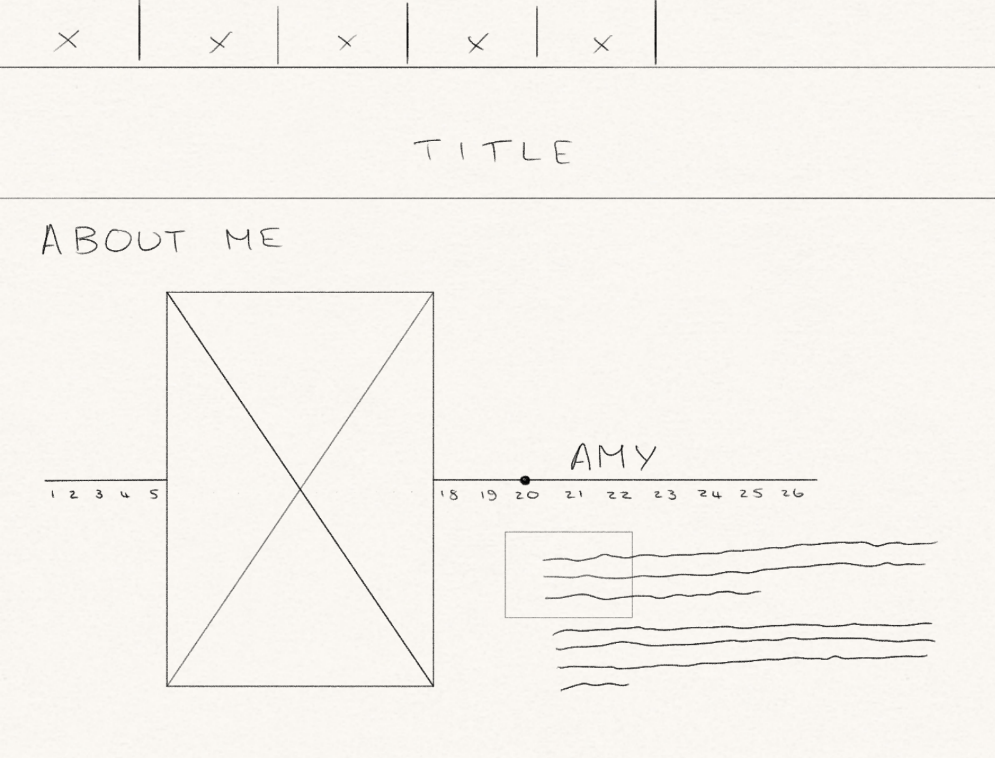 X X X X X
TITLE
ABOUT ME
AMY
1 2 3 4 5 18 19 20 21 22 23 24 25 26